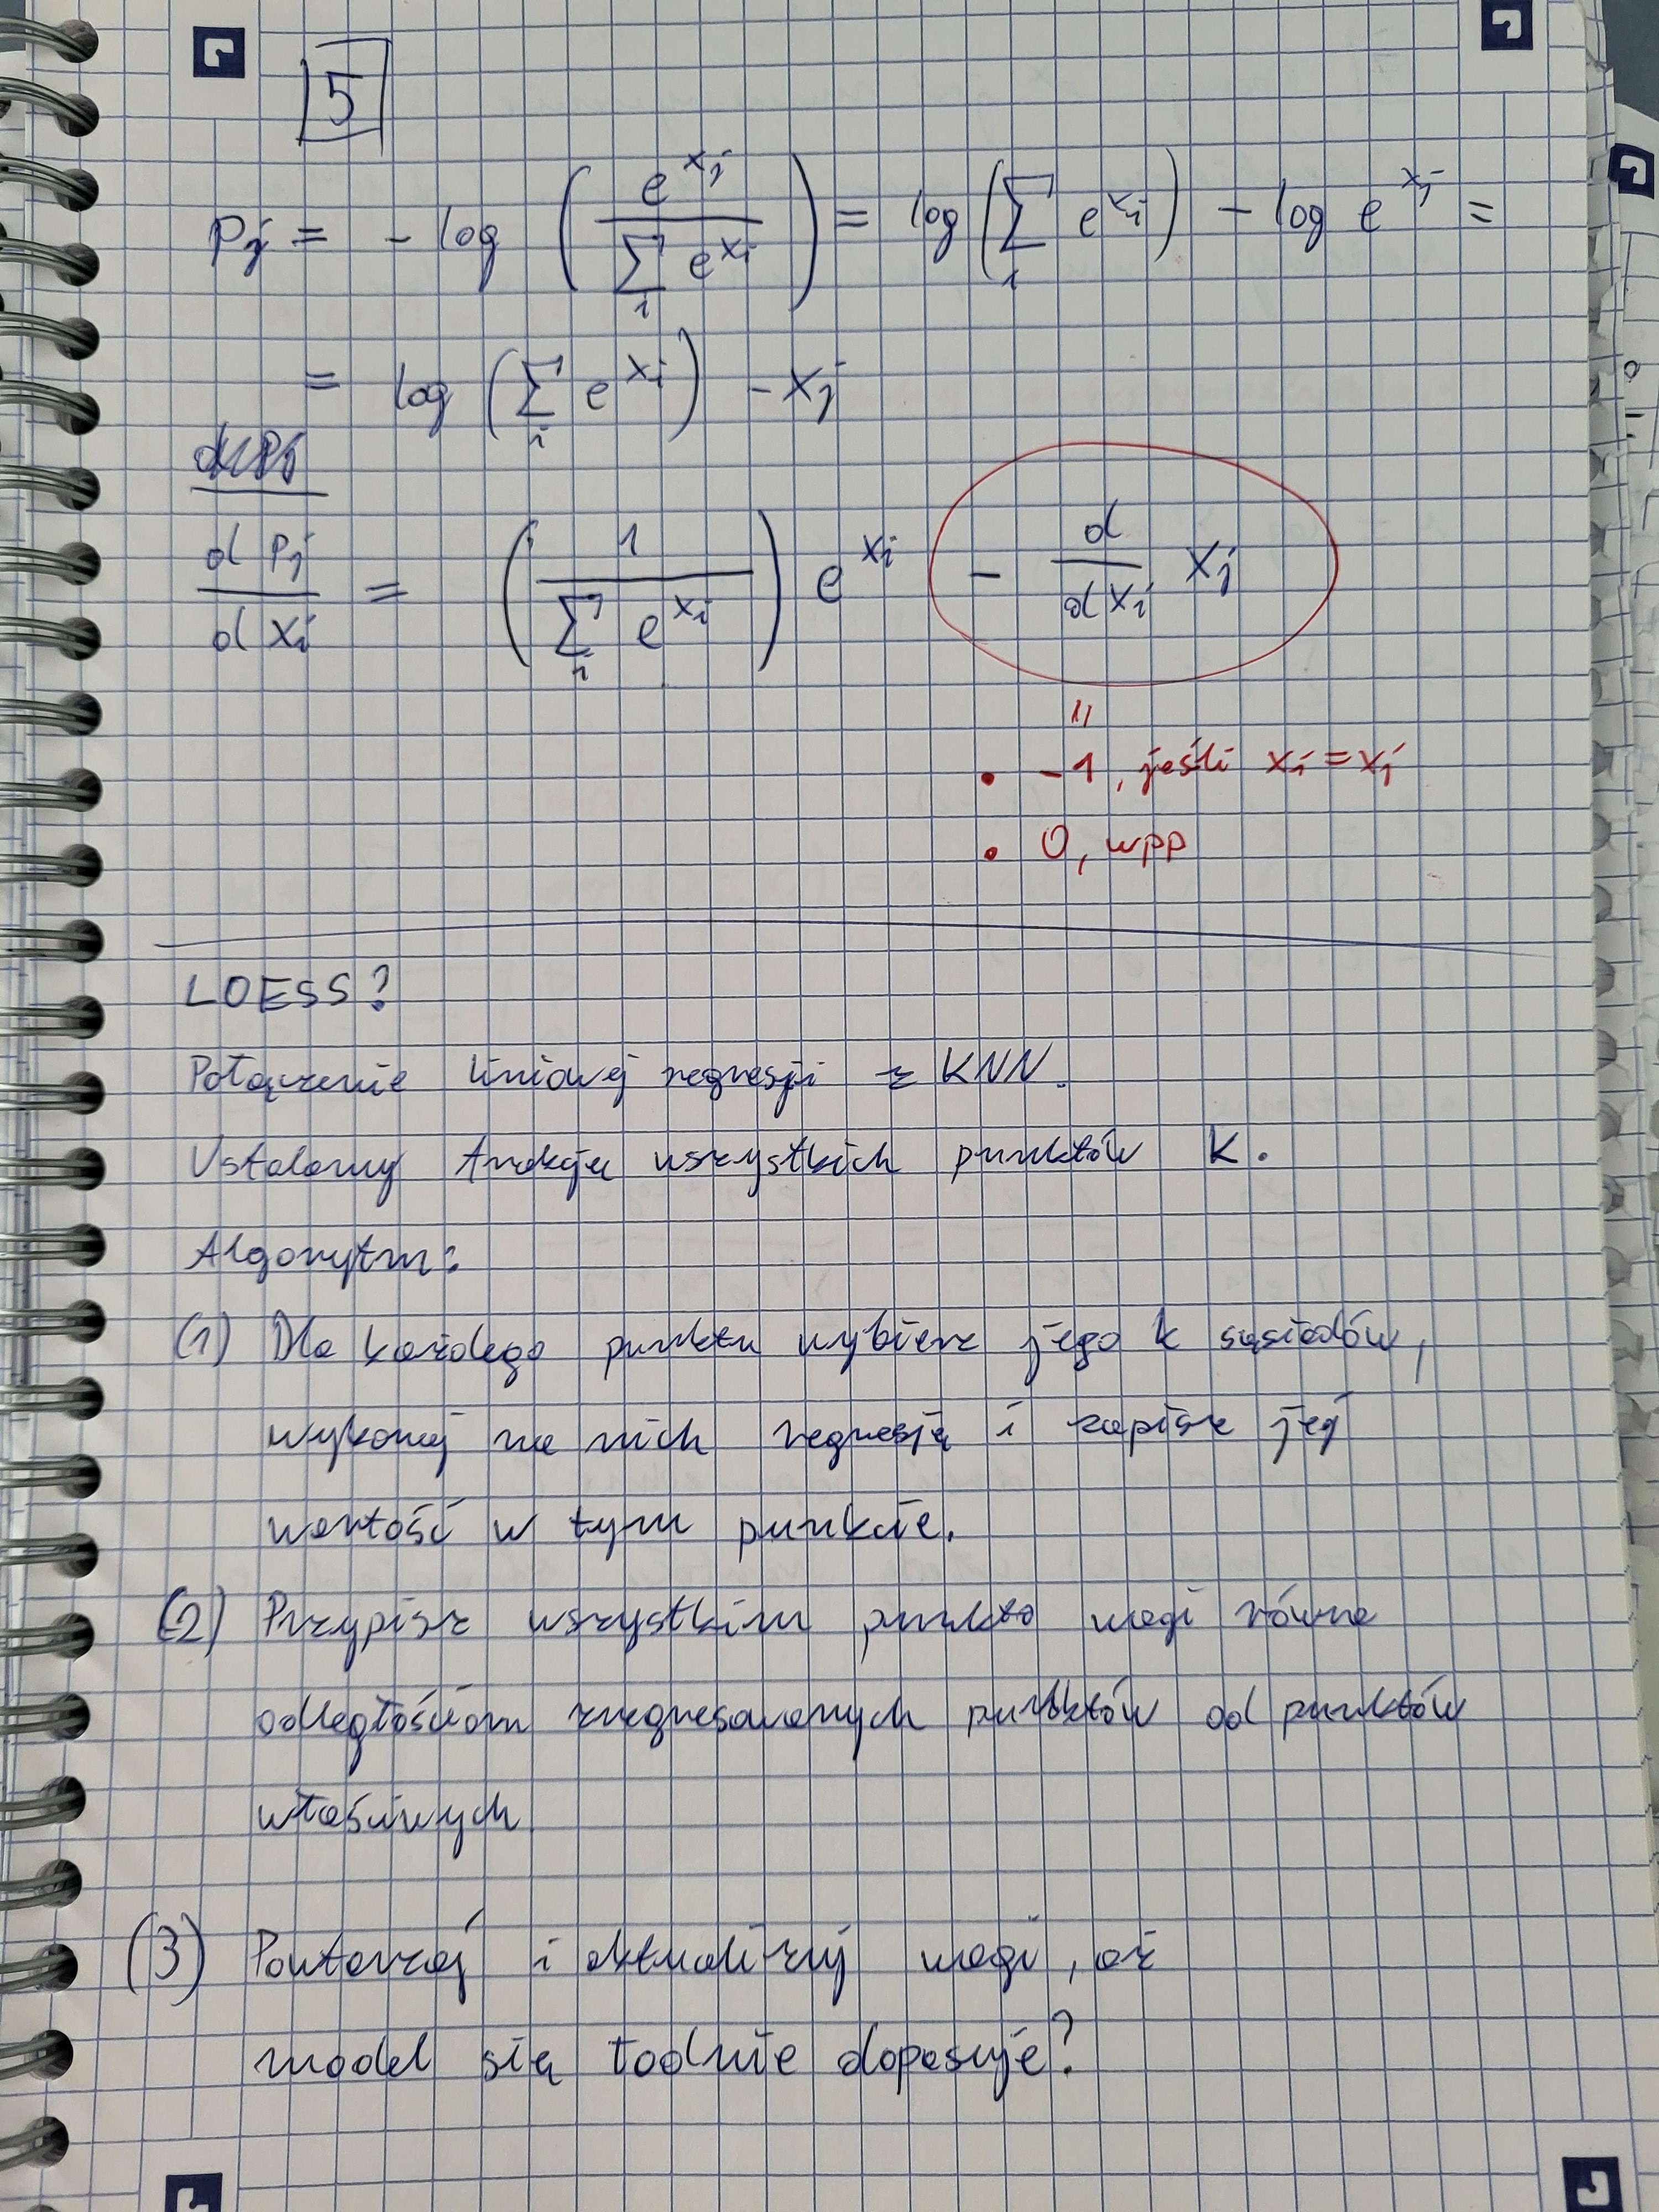 5
Pj = - log ( e^xj / Σ_i e^xi ) = log ( Σ_i e^xi ) - log e^xj =
= log ( Σ_i e^xi ) - xj
d Pj / d xi = ( 1 / Σ_i e^xi ) e^xi - d / d xi xj
=
• -1, jeśli xi = xj
• 0, wpp
LOESS?
Połączenie liniowej regresji z KNN.
Ustalamy frakcję wszystkich punktów k.
Algorytm:
(1) Dla każdego punktu wybierz jego k sąsiadów,
wykonaj na nich regresję i zapisz jej
wartość w tym punkcie.
(2) Przypisz wszystkim punkto wagi równe
odległościom zregresowanych punktów od punktów
właściwych.
(3) Powtarzaj i aktualizuj wagi, aż
model się ładnie dopasuje?